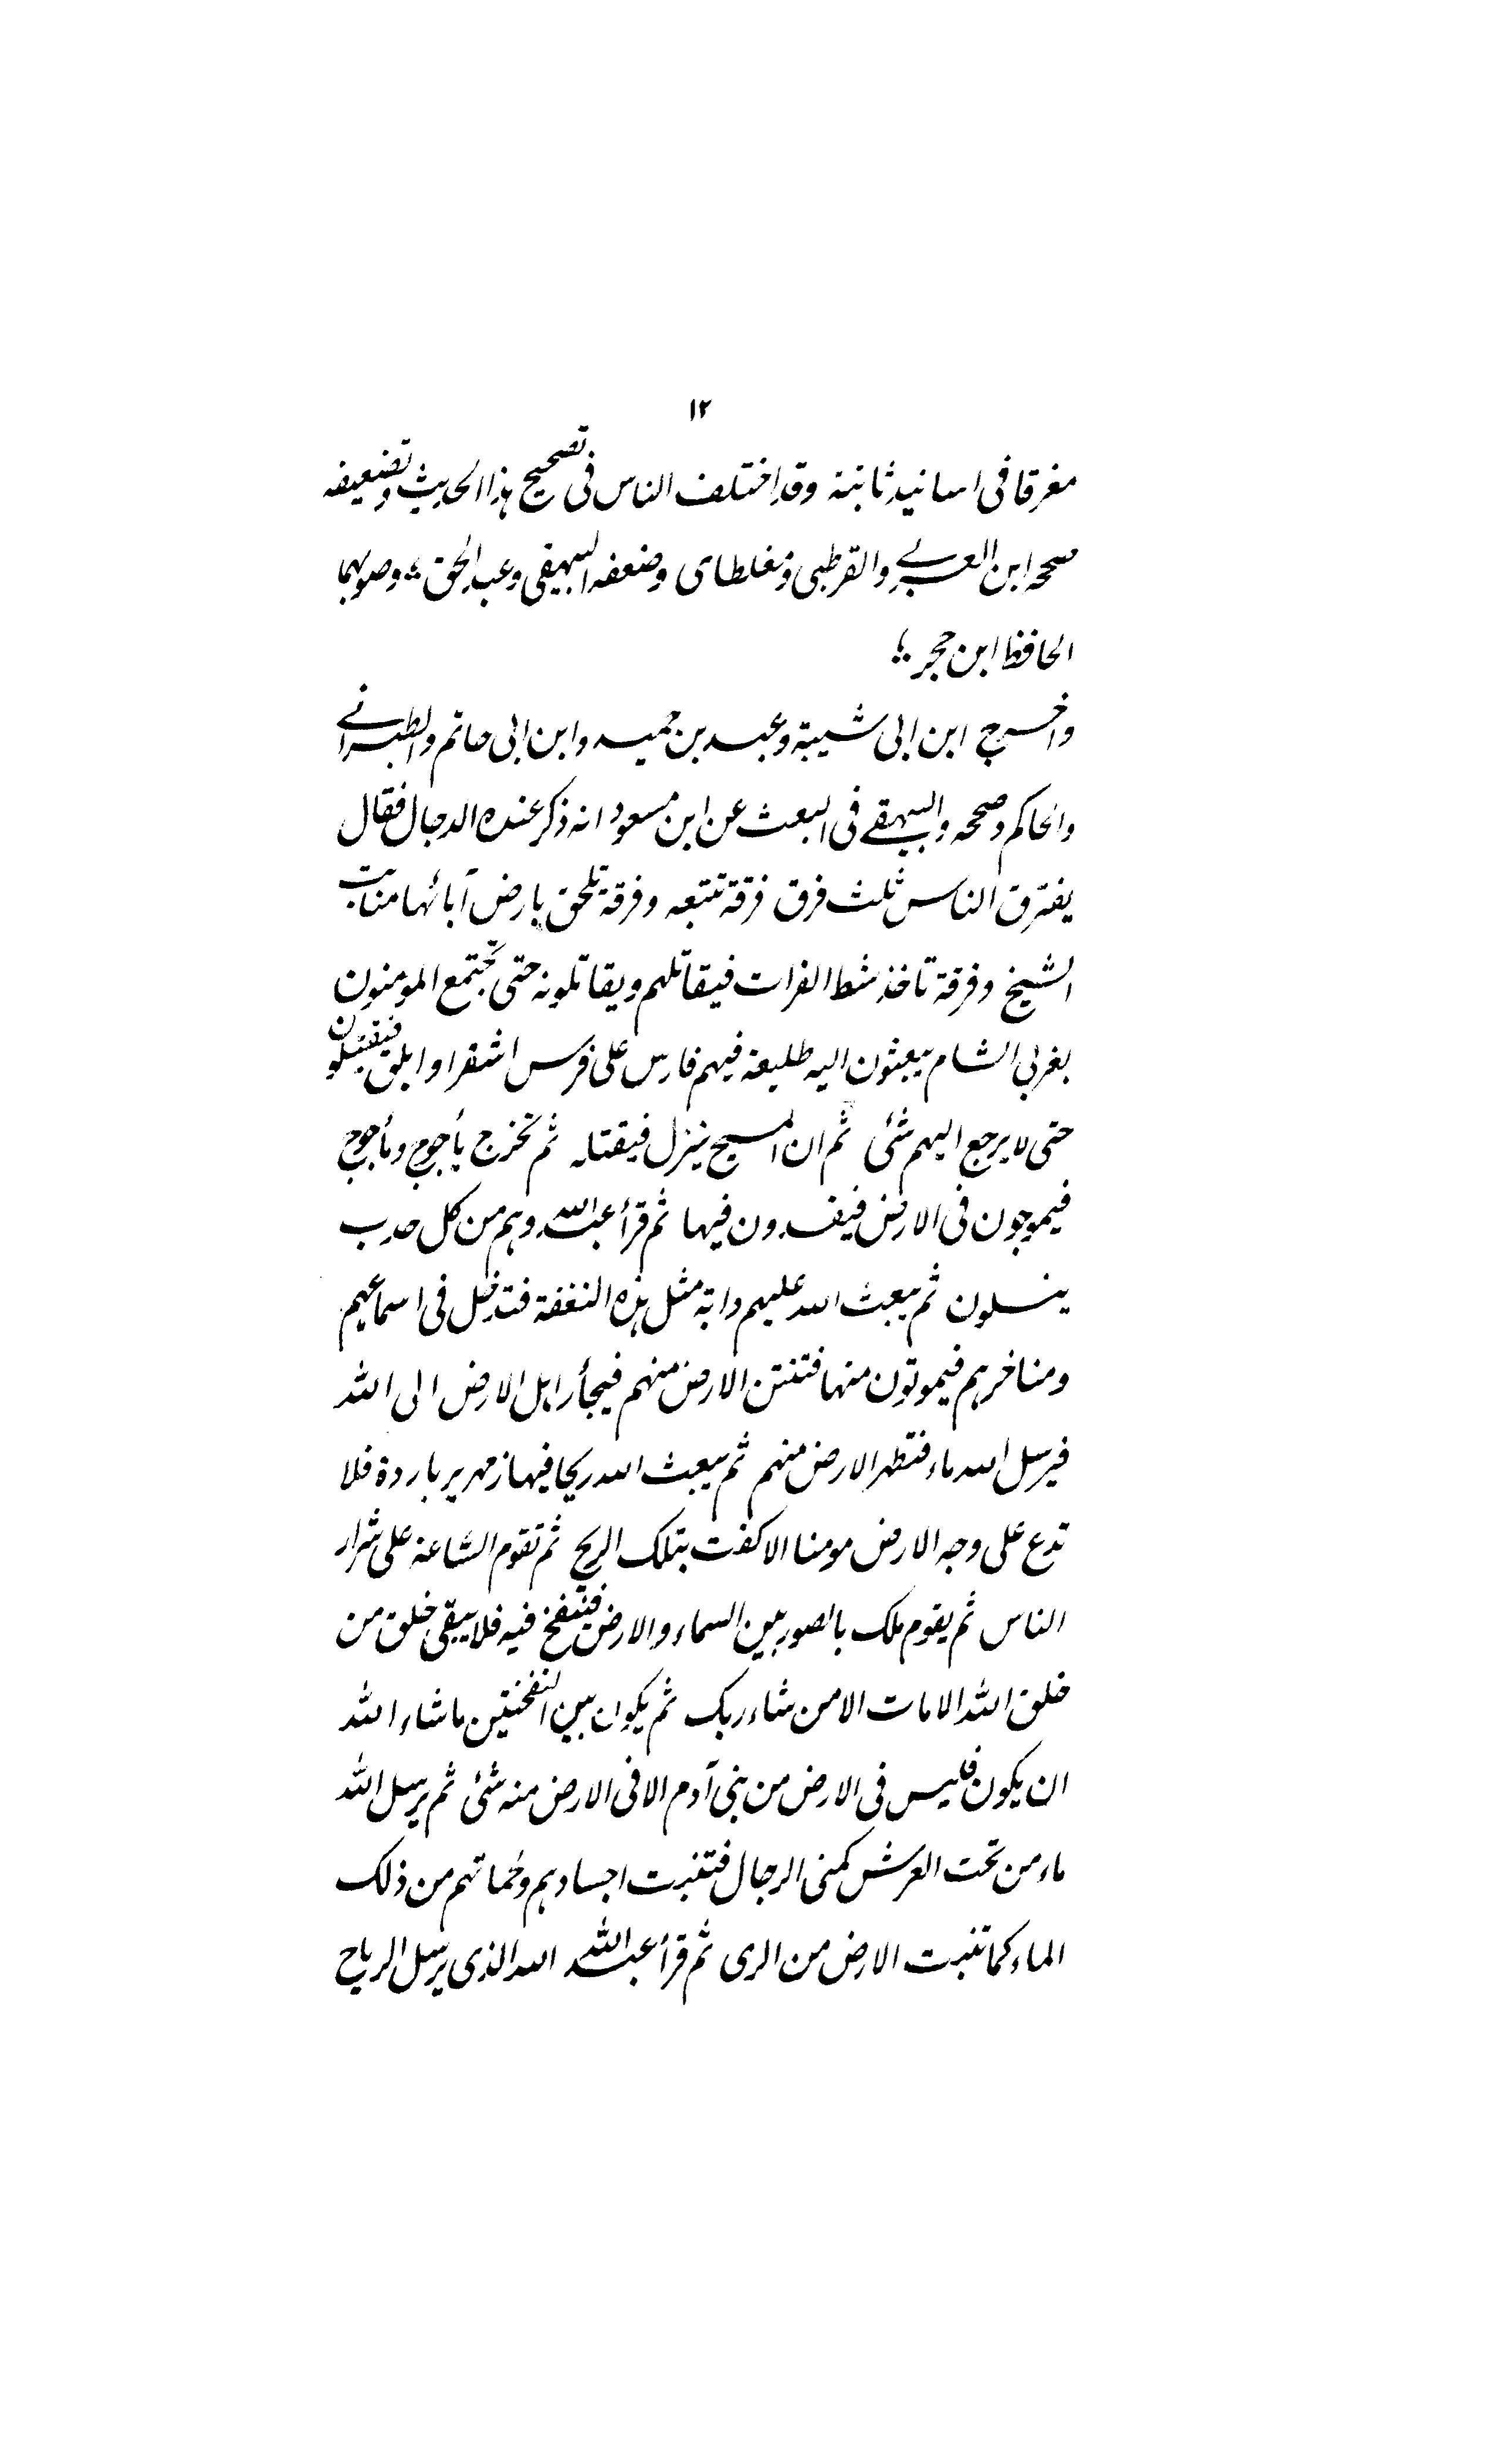 ١٢
مفرقا فی اسانید ثابتة وقد اختلف الناس فی تصحیح هذا الحدیث وتضعیفه
صححه ابن العربی والقرطبی ومغلطای وضعفه البیهقی وعبد الحق ؞ وصوبهما
الحافظ ابن حجر ؞
واخرج ابن ابی شیبة وعبد بن حمید وابن ابی حاتم والطبرانی
والحاکم وصححه والبیهقی فی البعث عن ابن مسعود انه ذکر عنده الدجال فقال
یفترق الناس ثلث فرق فرقة تتبعه وفرقة تلحق بارض آبائها منابت
الشیح وفرقة تاخذ شط الفرات فیقاتلهم ویقاتلونه حتی تجتمع المومنون
بغربی الشام یبعثون الیه طلیعة فیهم فارس علی فرس اشقر او ابلق فیقتلون
حتی لا یرجع الیهم شئ ثم ان المسیح ینزل فیقتله ثم تخرج یأجوج ومأجوج
فیموجون فی الارض فیفسدون فیها ثم قرأ عبد الله وهم من کل حدب
ینسلون ثم یبعث الله علیهم دابة مثل هذه النغفة فتدخل فی اسماعهم
ومناخرهم فیموتون منها فتنتن الارض منهم فیجأر اهل الارض الی الله
فیرسل الله ماء فتطهر الارض منهم ثم یبعث الله ریحا فیها زمهریر باردة فلا
تدع علی وجه الارض مومنا الا کفت بتلک الریح ثم تقوم الساعة علی شرار
الناس ثم یقوم ملک بالصور بین السماء والارض فینفخ فیه فلا یبقی خلق من
خلق الله الا مات الا من شاء ربک ثم یکون بین النفختین ما شاء الله
ان یکون فلیس فی الارض من بنی آدم الا فی الارض منه شئ ثم یرسل الله
ماء من تحت العرش کمنی الرجال فتنبت اجسادهم ولحماتهم من ذلک
الماء کما تنبت الارض من الری ثم قرأ عبد الله الله الذی یرسل الریاح